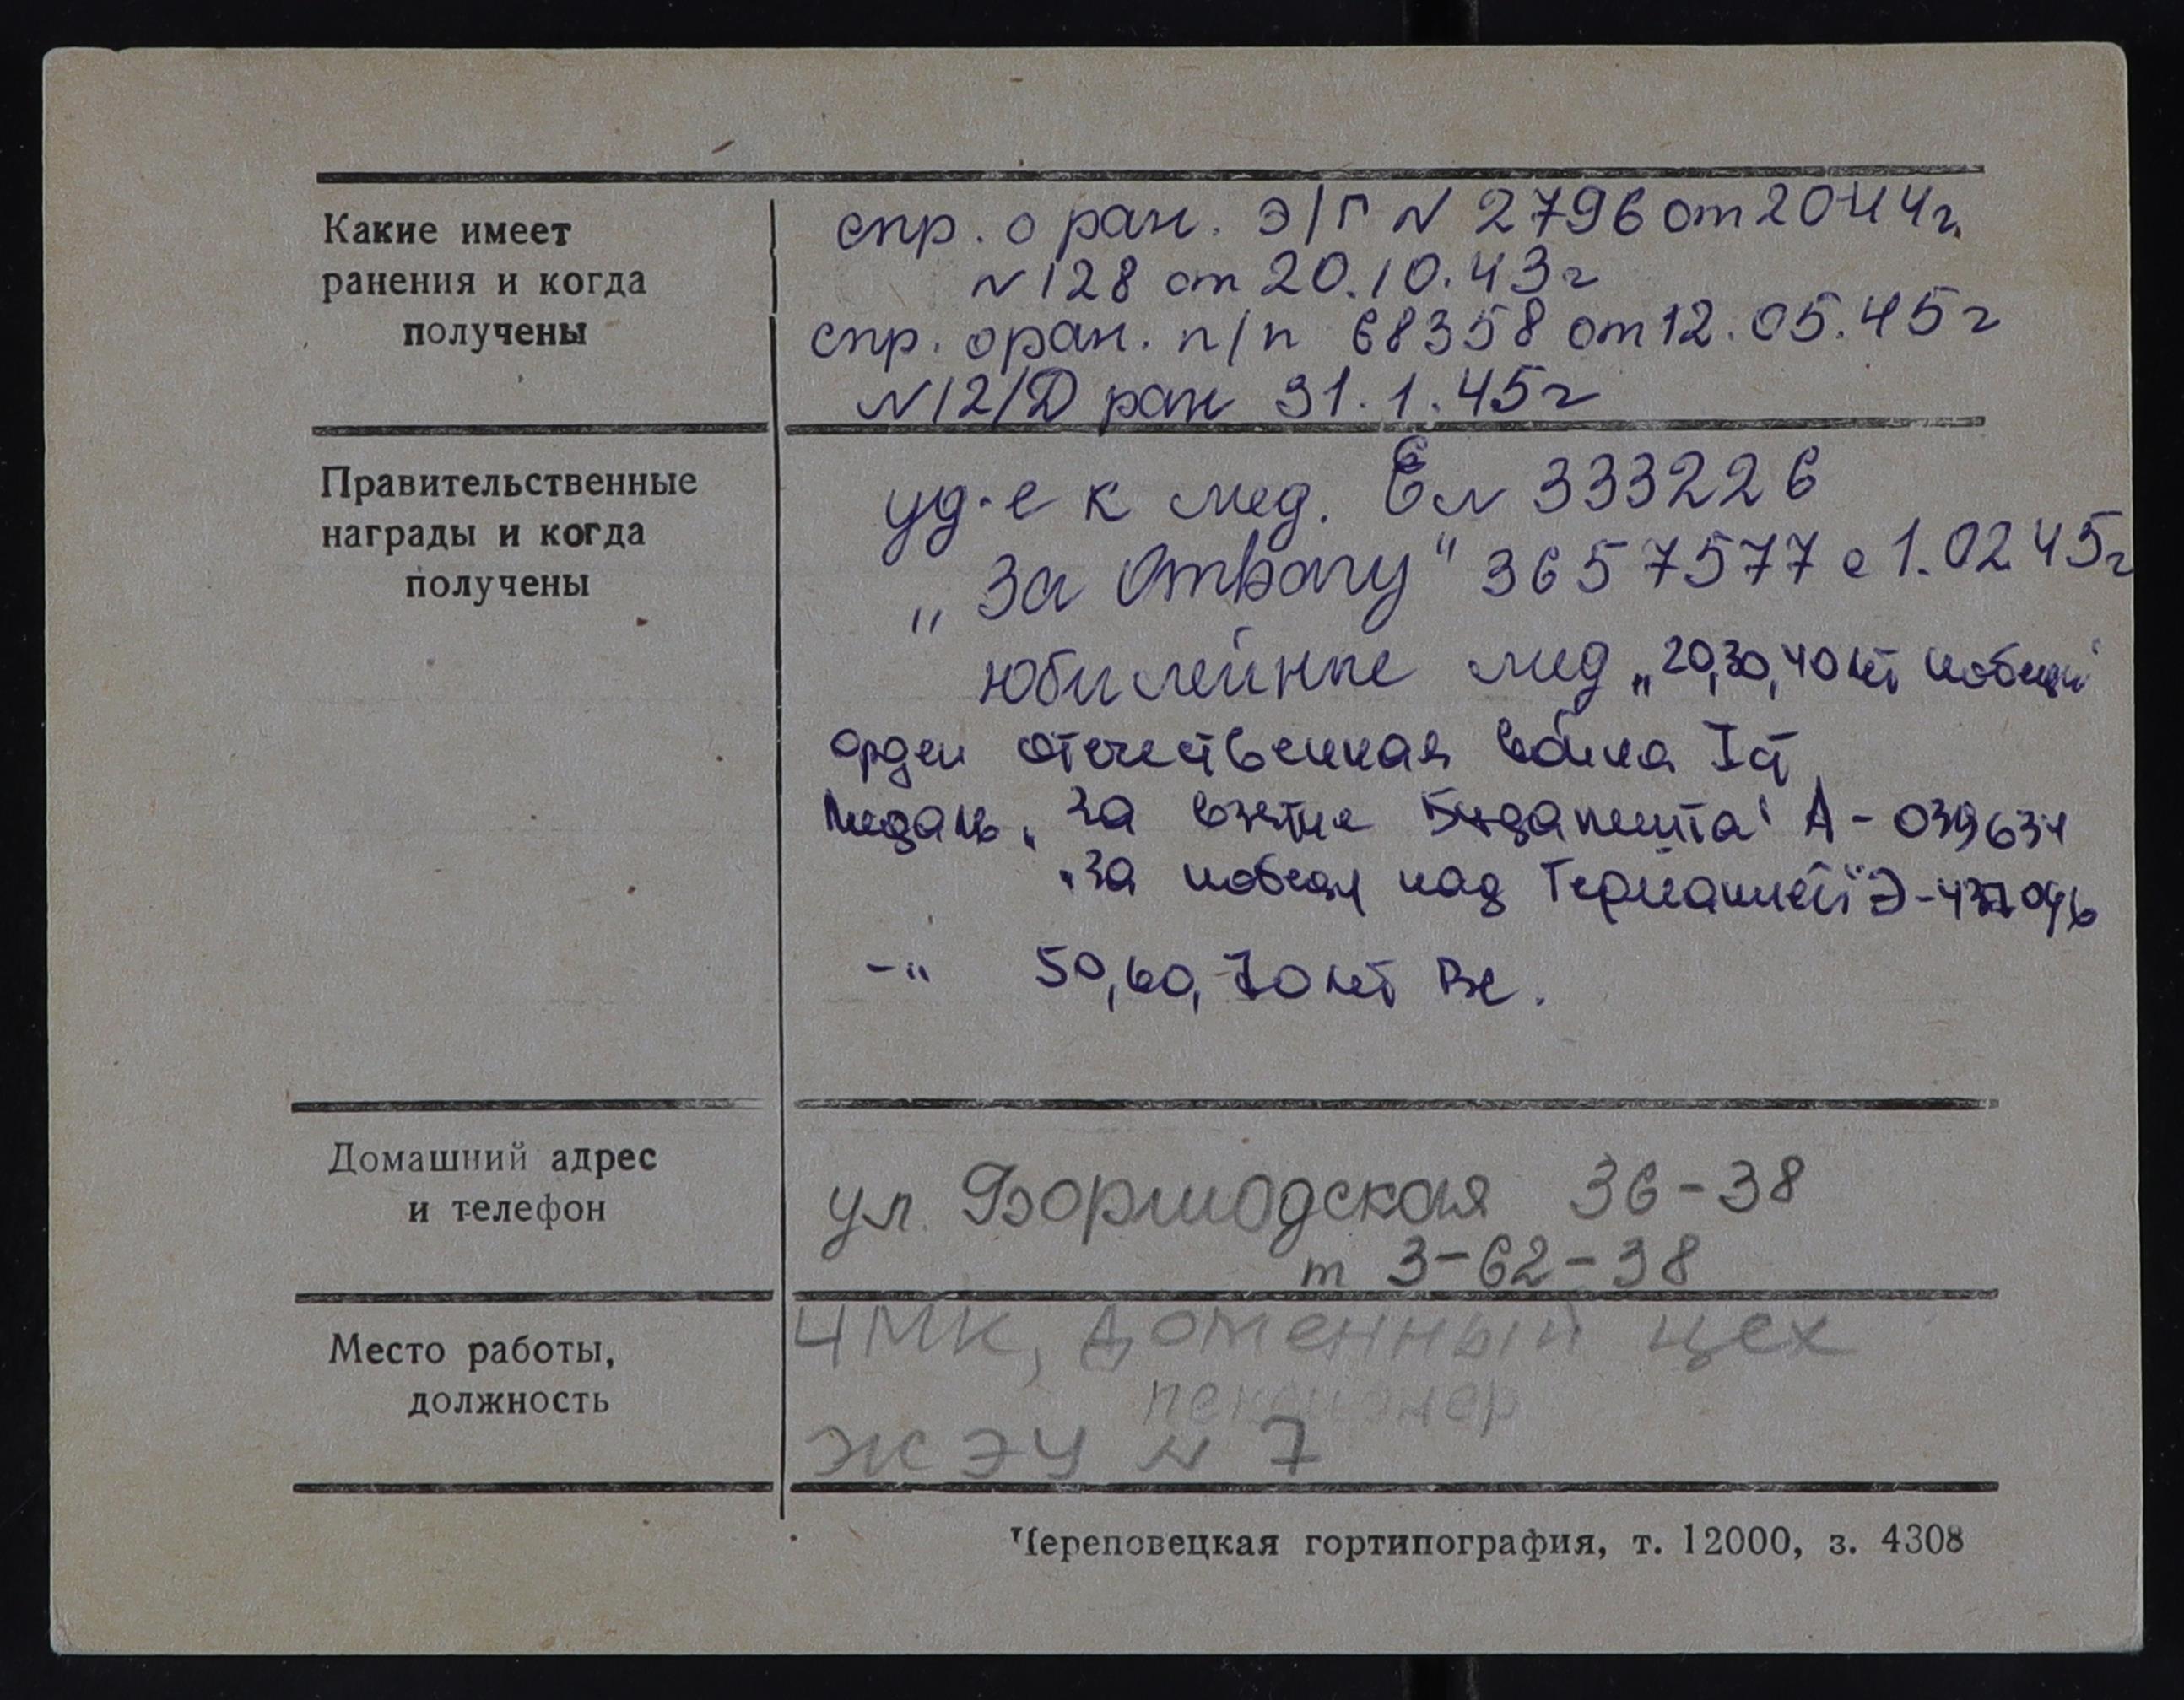 Какие имеет
ранения и когда
получены
спр. о ран. Э/Г № 2796 от 20 44 г.
№ 128 от 20.10.43 г
спр. о ран. п/п 68358 от 12.05.45 г
№ 12/Д ран 31.1.45 г
Правительственные
награды и когда
получены
уд-е к мед. Е № 333226
„За Отвагу" 3657577 с 1.02.45 г
юбилейные мед „20,30,40 лет победы"
орден отечественная война I ст,
медаль „За взятие Будапешта" А-039634
„За победу над Германией" Э-
-"- 50,60,70 лет ВС.
Домашний адрес
и телефон
ул. Боршодская 36-38
т 3-62-38
Место работы,
должность
ЧМК, Доменный цех
пенсионер
ЖЭУ № 7
Череповецкая гортипография, т. 12000, з. 4308